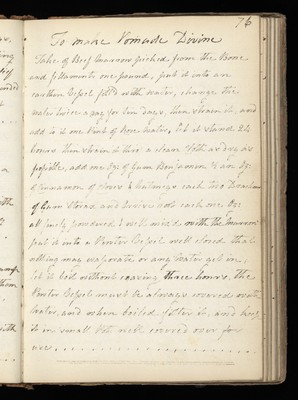 76
To make Pomade Divine
Take of Beef Marrow picked from the Bone
and filaments one pound, put it into an
earthen Vessel fill'd with water, change the
water twice a day for ten days, then strain it, and
add to it one Pint of Rose Water, let it stand 24
hours then strain it thro' a clean Cloth as dry as
possible, add one Oz: of Gum Benjamin ½ an Oz:
of Cinnamon of Cloves & Nutmegs each two Drachms
of Gum Storax and Orrice root each one Oz:
all finely powdered & well mixed with the Marrow
put it into a Pewter Vessel well closed that
nothing may evaporate or any Water get in,
let it boil without ceasing three hours, the
Pewter Vessel must be always covered with
Water, and when boiled filter it, and keep
it in small Pots well covered over for
use